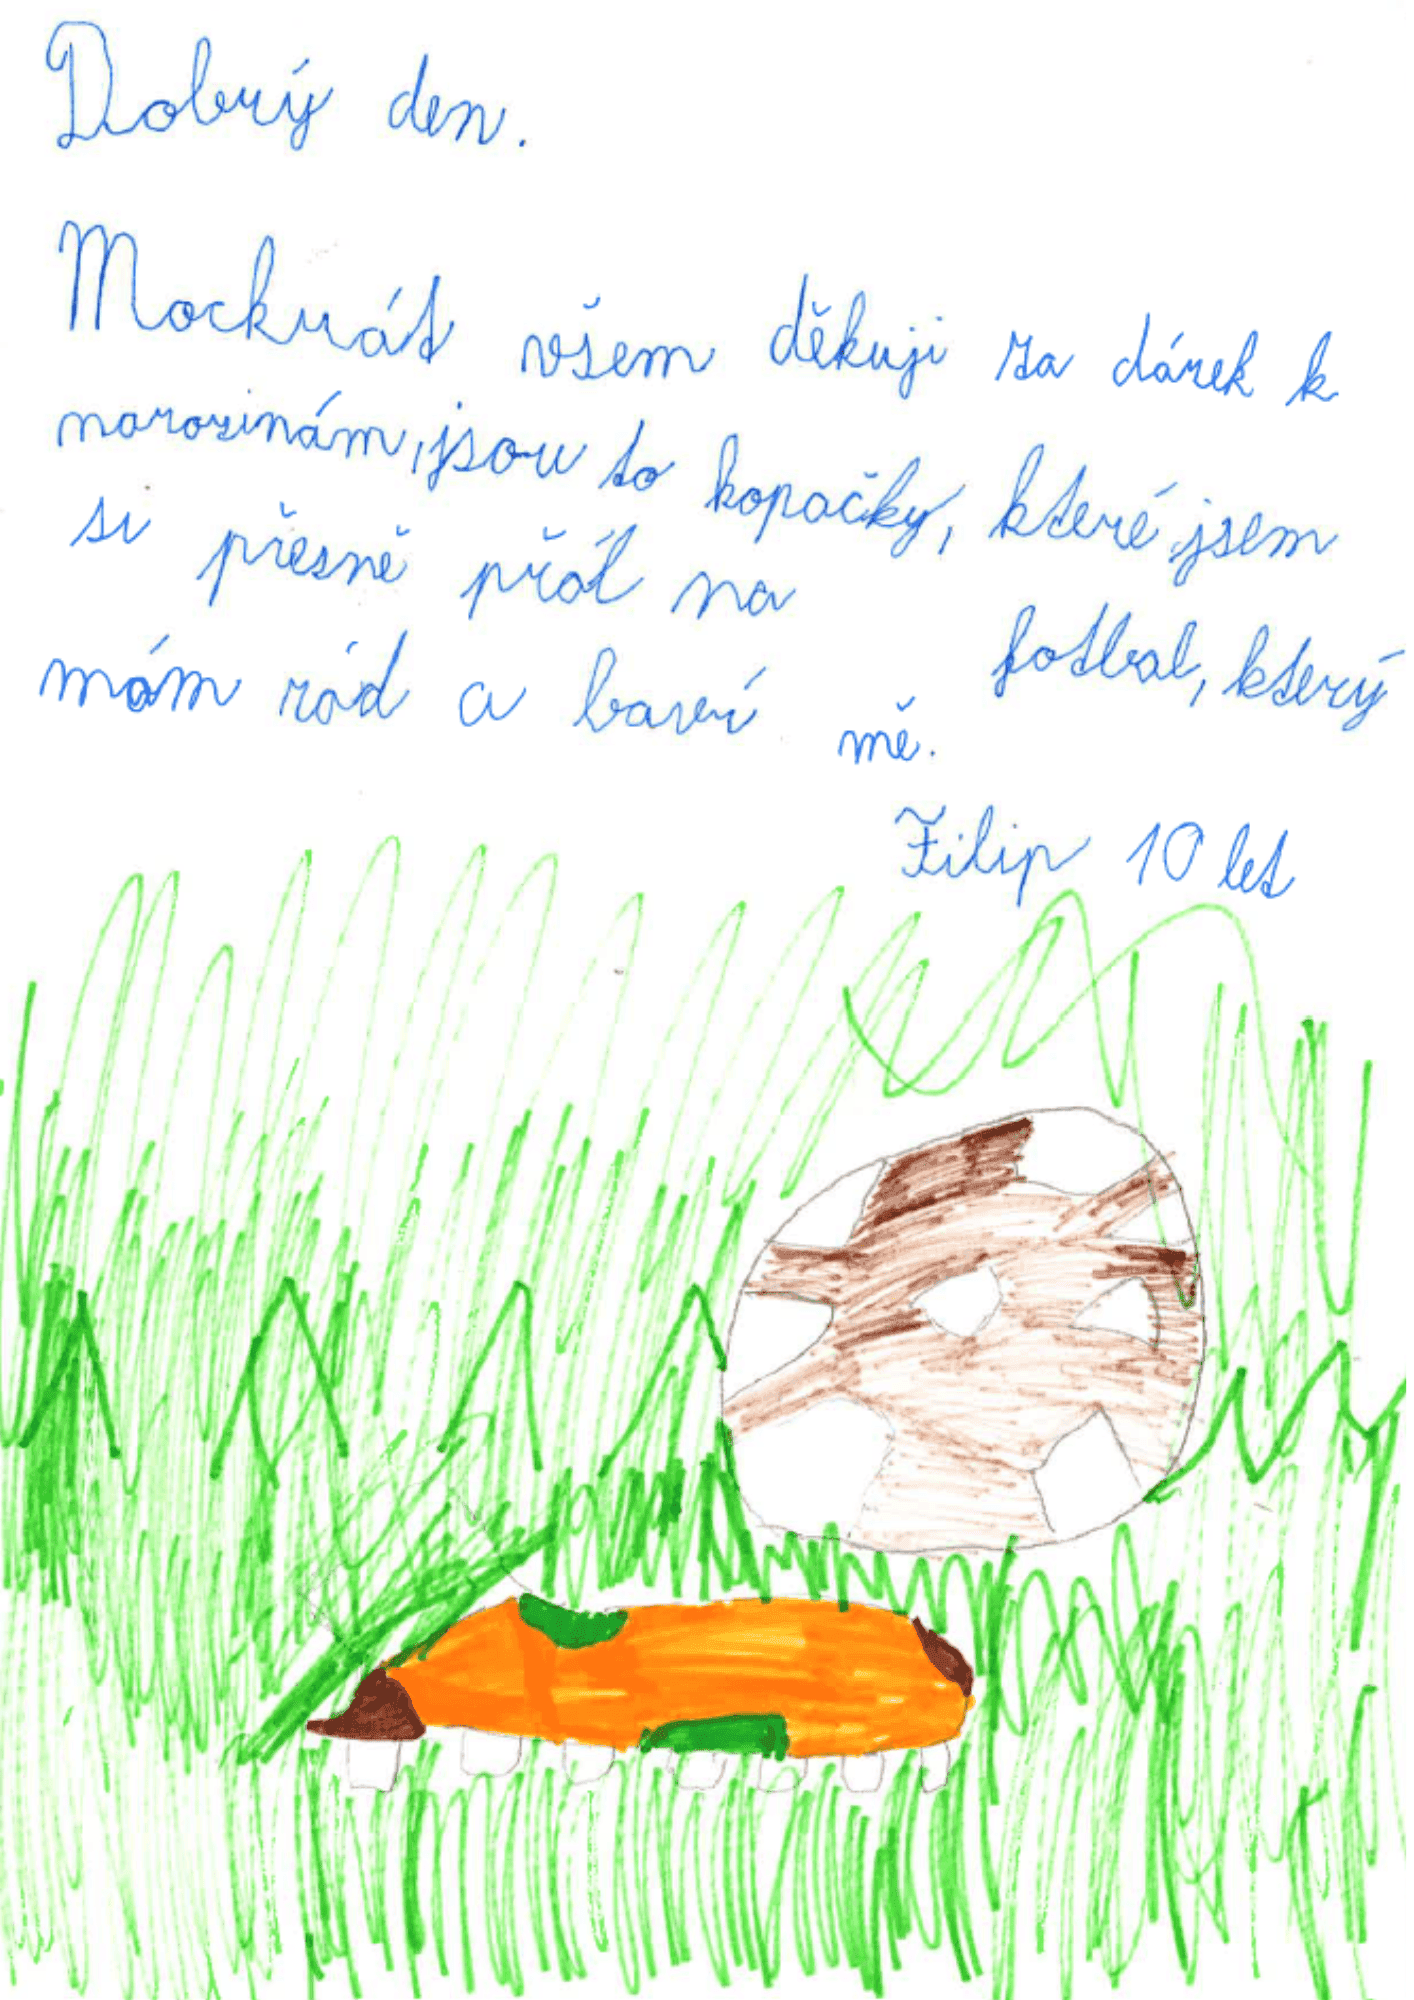 Dobrý den.
Mockrát všem děkuji za dárek k
narozinám, jsou to kopačky, které jsem
si přesně přál na fotbal, který
mám rád a baví mě.
Filip 10 let